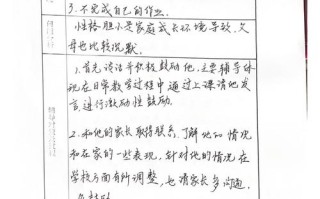 3. 不完成自己的作业。
性格胆小是家庭成长环境导致，父
母也比较沉默。
1. 首先谈话并积极鼓励他，主要辅导体
现在日常教学过程中通过上课请他发
言，进行激励性鼓励。
2. 和他的家长取得联系，了解他的情况
和在家的一些表现，针对他的情况在
学校方面有所调整，也请家长多沟通